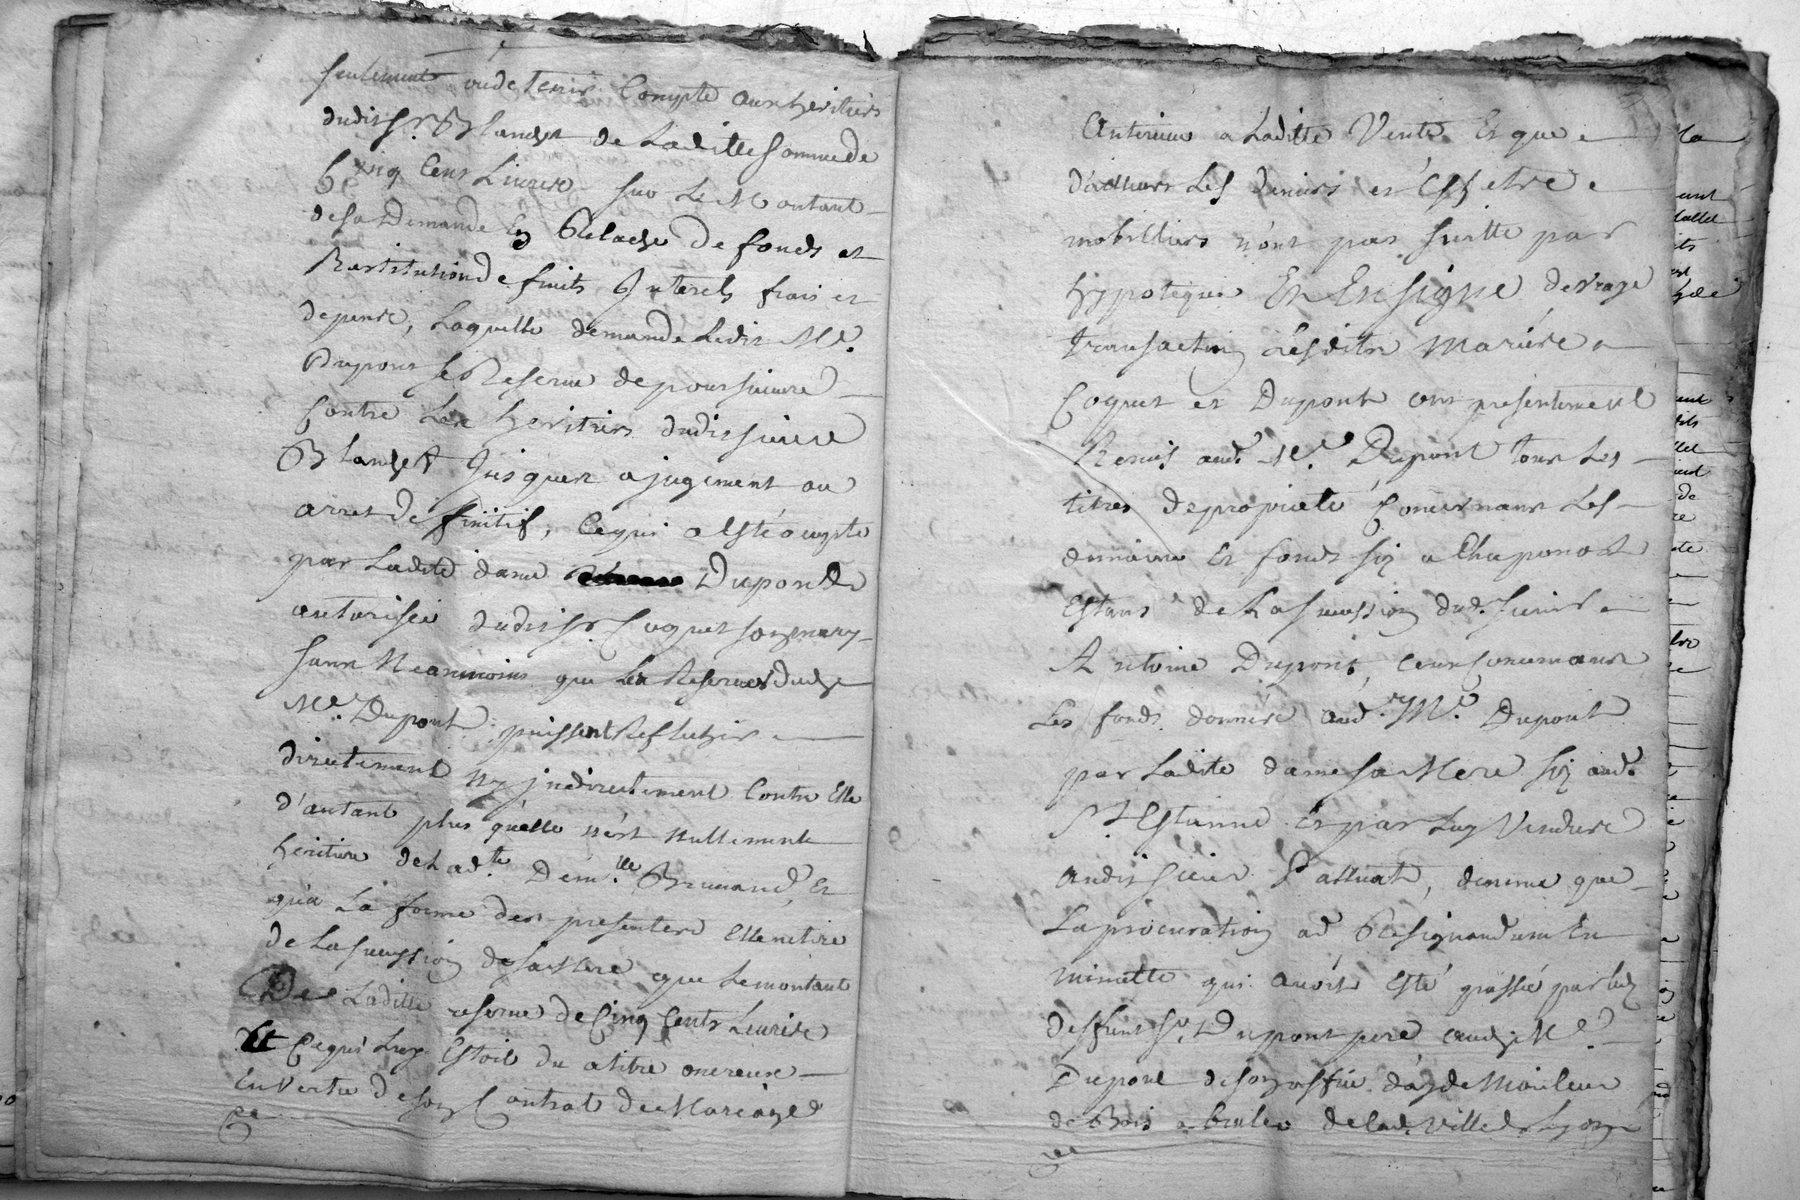 seulement ou de tenir Compte aux heritiers
dudit Sr. Blanchet de Laditte somme de
Cinq Cens Livres sur Le Montant
de sa Demande En Relache de fonds et
Restitution de fruits Interets frais et
depens, Laquelle demande Ledit Me.
Dupont se Reserve de poursuivre
Contre Les heritiers dudit sieur
Blanchet Jusques a jugement ou
arret definitif, Ce qui a Esté accepté
par Ladite dame Dupont
autorisée dudit Sr. Coquet son mary
sans Neanmoins que Les Reserves dudit
Me. Dupont puissent Reflechir
directement ny jndirectement Contre Elle
d'autant plus quelle n'est nullement
heritiere de Lad.te Dem.lle Brunand, Et
qu'a La forme des presentes Elle ne tire
de La succession de sa Mere que Le montant
De Laditte reserve de Cinq Cents Livres
Et Ce qui Luy Estoit du a titre onereux
En Vertu de son Contrat de Mariage
Anterieur a Laditte Vente Et que
d'ailleurs Les deniers et Effets
mobilliers n'ont pas suitte par
hypoteque En Ensigne de
transaction Lesdits Mariés
Coquet et Dupont ont presentement
Remis aud. Me. Dupont tous Les
titres de propriété Concernant Les
domaine Et fonds siz a Chaponost
Estans de La succession dud. sieur
Antoine Dupont, Ceux Concernant
Les fonds donnés aud. Me. Dupont
par Ladite dame sa Mere siz aud.
St. Estienne Et par Luy Vendus
audit sieur, de meme que
La procuration ad Resignandum En
minutte qui avoit Esté passée par Led.
deffunt Sr. Dupont pere audit Me.
Dupont de son office de Mouleur
de Bois a bruler de Lad. Ville de Lyon